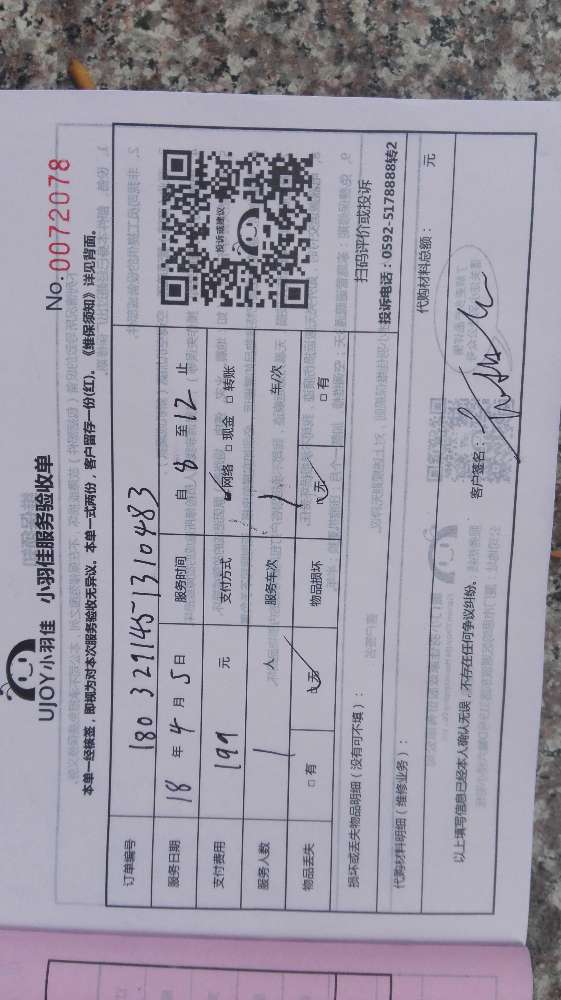 UJOY小羽佳 小羽佳服务验收单
No:0072078
本单一经核签，即视为对本次服务验收无异议。本单一式两份，客户留存一份(红)。《维保须知》详见背面。
订单编号 180329145-1310483
服务日期 18 年 4 月 5 日 服务时间 自 8 至 12 止
支付费用 199 元 支付方式 ☑网络 □现金 □转账
服务人数 1 人 服务车次 1 车/次
物品丢失 □有 ☑无 物品损坏 ☑无 □有
投诉或建议
扫码评价或投诉
投诉电话：0592-5178888转2
损坏或丢失物品明细（没有可不填）：
代购材料明细（维修业务）： 代购材料总额： 元
以上填写信息已经本人确认无误，不存在任何争议纠纷。 客户签名：